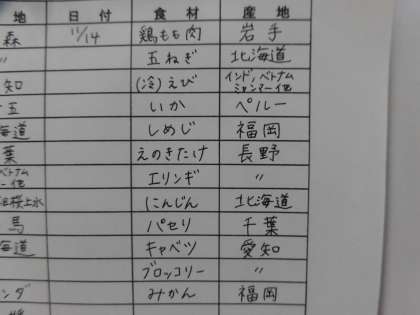 地 日付 食材 産地
森 11/14 鶏もも肉 岩手
〃 玉ねぎ 北海道
知 (冷)えび インド,ベトナム
ミャンマー他
玉 いか ペルー
海道 しめじ 福岡
葉 えのきたけ 長野
ベトナム
ー他 エリンギ 〃
にんじん 北海道
馬 パセリ 千葉
海道 キャベツ 愛知
ブロッコリー 〃
ンダ みかん 福岡